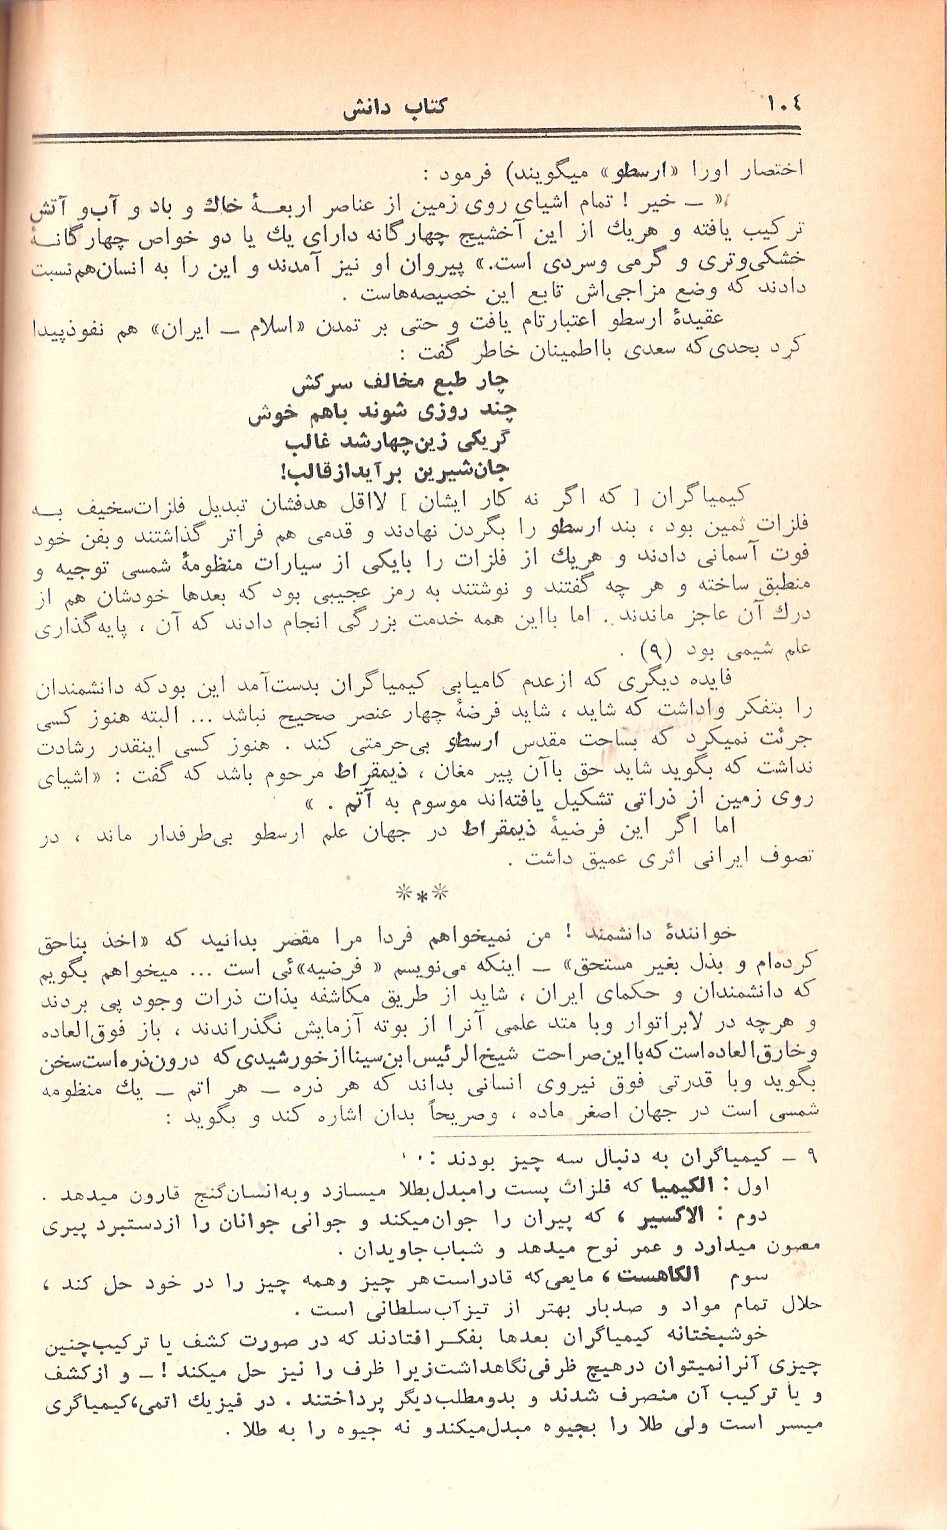 ۱۰٤
کتاب دانش
اختصار اورا «ارسطو» میگویند) فرمود :
« ـ خیر ! تمام اشیای روی زمین از عناصر اربعهٔ خاك و باد و آب و آتش
ترکیب یافته و هریك از این آخشیج چهارگانه دارای یك یا دو خواص چهارگانهٔ
خشکی‌وتری و گرمی وسردی است.» پیروان او نیز آمدند و این را به انسان‌هم‌نسبت
دادند که وضع مزاجی‌اش تابع این خصیصه‌هاست .
عقیدهٔ ارسطو اعتبارتام یافت و حتی بر تمدن «اسلام ـ ایران» هم نفوذپیدا
کرد بحدی‌که سعدی بااطمینان خاطر گفت :
چار طبع مخالف سرکش
چند روزی شوند باهم خوش
گریکی زین‌چهارشد غالب
جان‌شیرین برآیدازقالب!
کیمیاگران [ که اگر نه کار ایشان ] لااقل هدفشان تبدیل فلزات‌سخیف بـه
فلزات ثمین بود ، بند ارسطو را بگردن نهادند و قدمی هم فراتر گذاشتند وبفن خود
قوت آسمانی دادند و هریك از فلزات را بایکی از سیارات منظومهٔ شمسی توجیه و
منطبق ساخته و هر چه گفتند و نوشتند به رمز عجیبی بود که بعدها خودشان هم از
درك آن عاجز ماندند . اما بااین همه خدمت بزرگی انجام دادند که آن ، پایه‌گذاری
علم شیمی بود (۹) .
فایده دیگری که ازعدم کامیابی کیمیاگران بدست‌آمد این بودکه دانشمندان
را بتفکر واداشت که شاید ، شاید فرضهٔ چهار عنصر صحیح نباشد ... البته هنوز کسی
جرئت نمیکرد که بساحت مقدس ارسطو بی‌حرمتی کند . هنوز کسی اینقدر رشادت
نداشت که بگوید شاید حق باآن پیر مغان ، ذیمقراط مرحوم باشد که گفت : «اشیای
روی زمین از ذراتی تشکیل یافته‌اند موسوم به آتم . »
اما اگر این فرضیهٔ ذیمقراط در جهان علم ارسطو بی‌طرفدار ماند ، در
تصوف ایرانی اثری عمیق داشت .
***
خوانندهٔ دانشمند ! من نمیخواهم فردا مرا مقصر بدانید که «اخذ بناحق
کرده‌ام و بذل بغیر مستحق» ـ اینکه می‌نویسم « فرضیه»ئی است ... میخواهم بگویم
که دانشمندان و حکمای ایران ، شاید از طریق مکاشفه بذات ذرات وجود پی بردند
و هرچه در لابراتوار وبا متد علمی آنرا از بوته آزمایش نگذراندند ، باز فوق‌العاده
وخارق‌العاده‌است‌که‌بااین‌صراحت شیخ‌الرئیس‌ابن‌سیناازخورشیدی‌که درون‌ذره‌است‌سخن
بگوید وبا قدرتی فوق نیروی انسانی بداند که هر ذره ـ هر اتم ـ یك منظومه
شمسی است در جهان اصغر ماده ، وصریحاً بدان اشاره کند و بگوید :
۹ ـ کیمیاگران به دنبال سه چیز بودند :
اول : الکیمیا که فلزات پست رامبدل‌بطلا میسازد وبه‌انسان‌گنج قارون میدهد .
دوم : الاکسیر ، که پیران را جوان‌میکند و جوانی جوانان را ازدستبرد پیری
مصون میدارد و عمر نوح میدهد و شباب جاویدان .
سوم الکاهست ، مایعی‌که قادراست‌هر چیز وهمه چیز را در خود حل کند ،
حلال تمام مواد و صدبار بهتر از تیزآب‌سلطانی است .
خوشبختانه کیمیاگران بعدها بفکر افتادند که در صورت کشف یا ترکیب‌چنین
چیزی آنرانمیتوان درهیچ ظرفی‌نگاهداشت‌زیرا ظرف را نیز حل میکند ! ـ و ازکشف
و یا ترکیب آن منصرف شدند و بدومطلب‌دیگر پرداختند . در فیزیك اتمی،کیمیاگری
میسر است ولی طلا را بجیوه مبدل‌میکندو نه جیوه را به طلا .